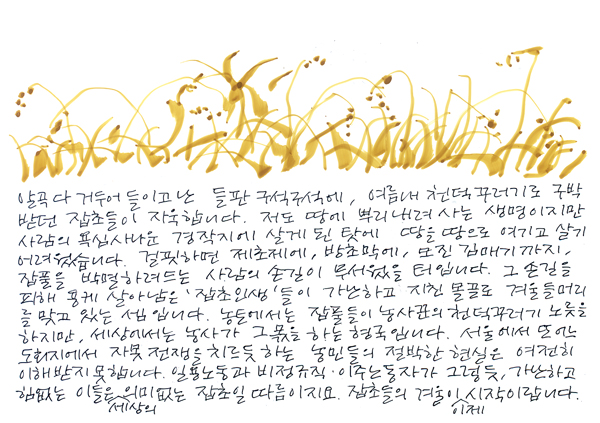 알곡 다 거두어 들이고 난 들판 구석구석에, 여름내 천덕꾸러기로 구박
받던 잡초들이 자욱합니다. 저도 땅에 뿌리내려 사는 생명이지만
사람의 욕심사나운 경작지에 살게 된 탓에 땅을 땅으로 여기고 살기
어려웠습니다. 걸핏하면 제초제에, 방초막에, 모진 김매기까지,
잡풀을 박멸하려드는 사람의 손길이 무서웠을 터입니다. 그 손길을
피해 용케 살아남은 '잡초인생'들이 가난하고 지친 몰골로 겨울들머리
를 맞고 있는 셈입니다. 농토에서는 잡풀들이 농사꾼의 천덕꾸러기 노릇을
하지만, 세상에서는 농사가 그 몫을 하는 형국입니다. 서울에서 또 어느
도회지에서 자못 전쟁을 치르듯 하는 농민들의 절박한 현실은 여전히
이해받지 못합니다. 일용노동과 비정규직·이주노동자가 그렇듯, 가난하고
힘없는 이들은 세상의 의미없는 잡초일 따름이지요. 잡초들의 겨울이 이제 시작이랍니다.